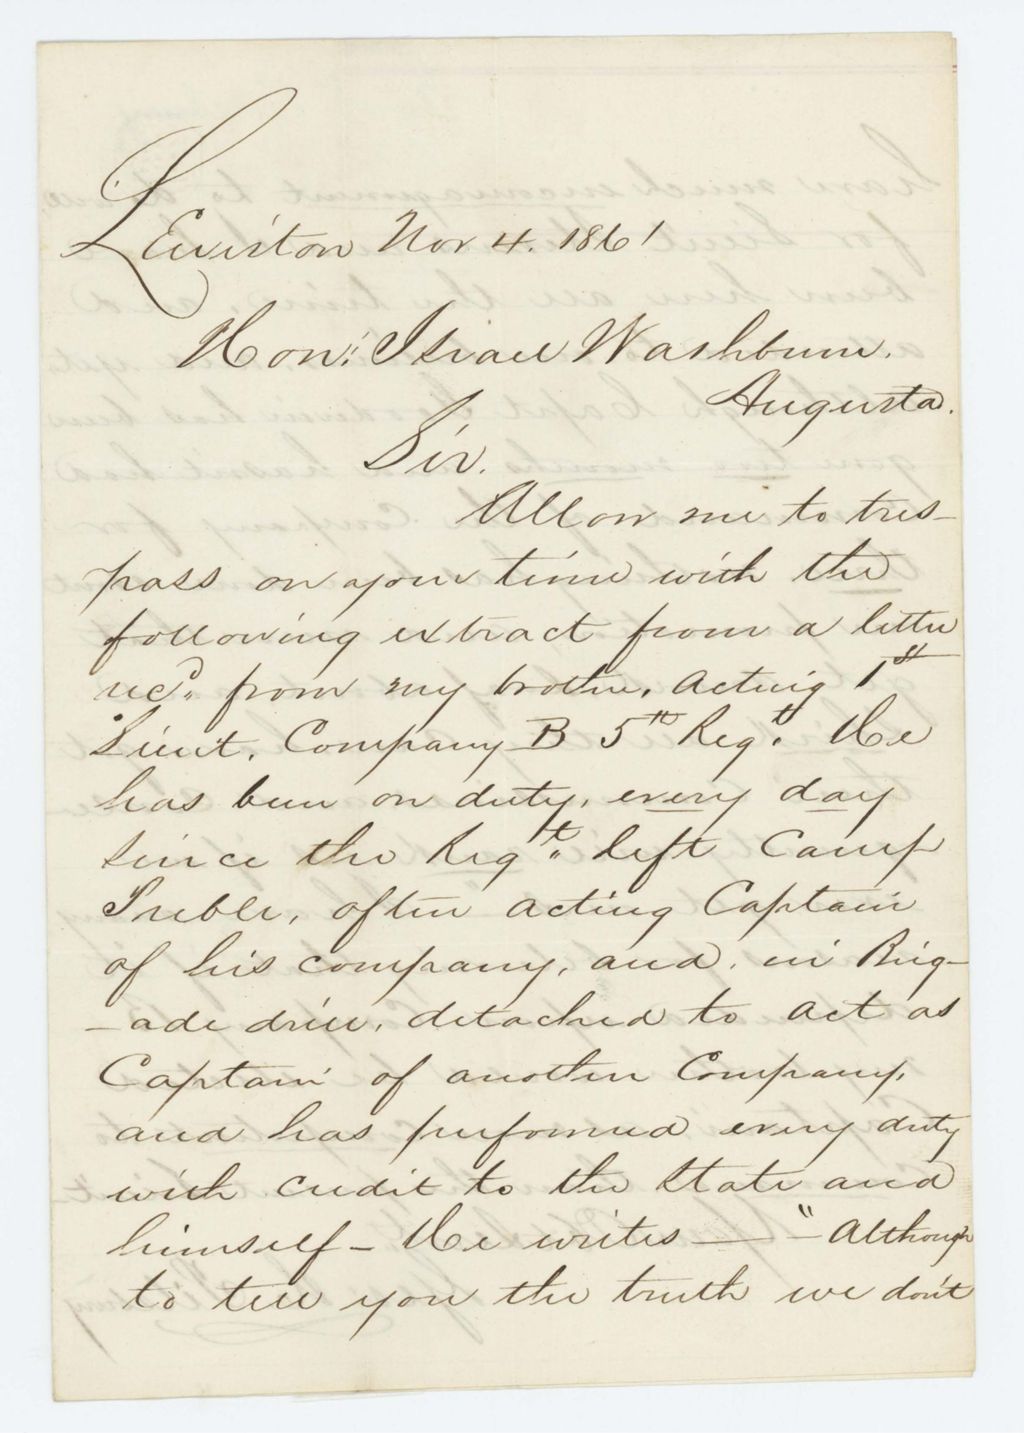 Lewiston Nov 4. 1861
Hon: Israel Washburn.
Augusta.
Sir.
Allow me to tres-
pass on your time with the
following extract from a letter
rec'd. from my brother, acting 1st
Lieut. Company B 5th Regt. He
has been on duty, every day
since the Regt. left Camp
Preble, often acting Captain
of his company, and, in Brig-
-ade drill, detached to act as
Captain of another Company,
and has performed every duty
with credit to the State and
himself - He writes - "Although
to tell you the truth we don't